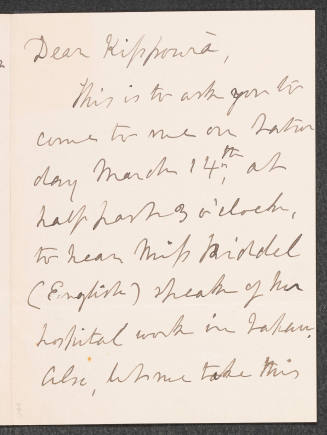 Dear Kippowā,
This is to ask you to
come to me on Satur
day March 14th, at
half past 3 o'clock,
to hear Miss Riddel
(English) speak of her
hospital work in Japan.
Also, let me take this